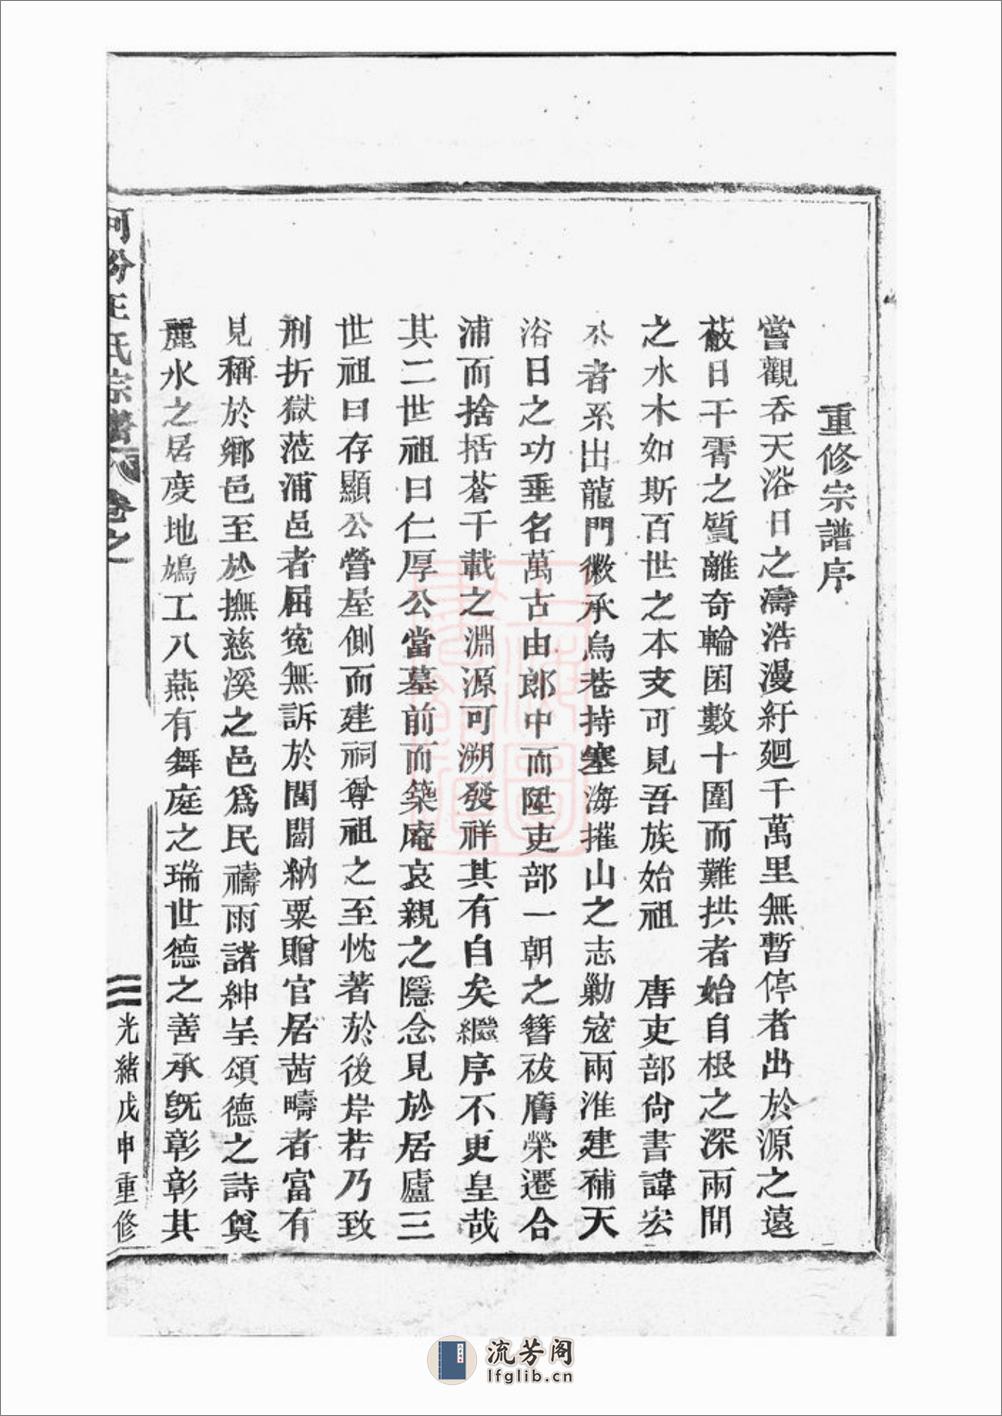 重修宗譜序
嘗觀吞天浴日之濤浩漫紆廻千萬里無暫停者出於源之遠
蔽日干霄之質離奇輪囷數十圍而難拱者始自根之深兩間
之水木如斯百世之本支可見吾族始祖 唐吏部尙書諱宏
公者系出龍門徽承烏巷持塞海摧山之志勦寇兩淮建補天
浴日之功垂名萬古由郎中而陞吏部一朝之簪祓膺榮遷合
浦而捨括蒼千載之淵源可溯發祥其有自矣繼序不更皇哉
其二世祖曰仁厚公當墓前而築庵哀親之隱念見於居廬三
世祖曰存顯公營屋側而建祠尊祖之至忱著於後岸若乃致
刑折獄蒞浦邑者屈寃無訴於閭閻納粟贈官居茜疇者富有
見稱於鄕邑至於撫慈溪之邑爲民禱雨諸紳呈頌德之詩奠
麗水之居度地鳩工八燕有舞庭之瑞世德之善承旣彰彰其
河汾王氏宗譜 卷之
三 光緖戊申重修
流芳阁
lfglib.cn